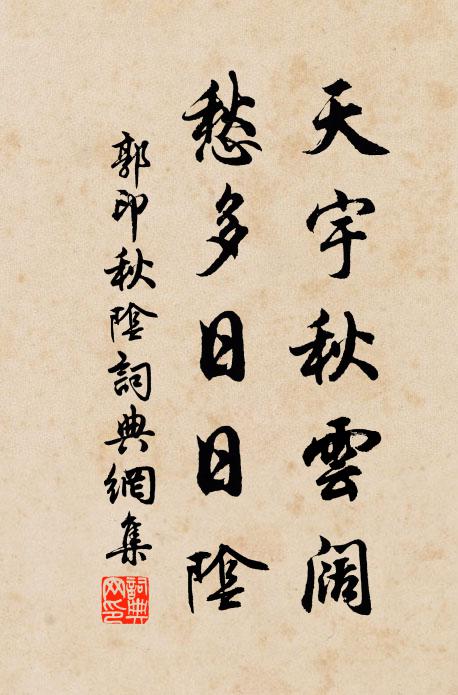 天宇秋雲闊
愁多日日陰
郭印秋陰詞典網集
詞典網印